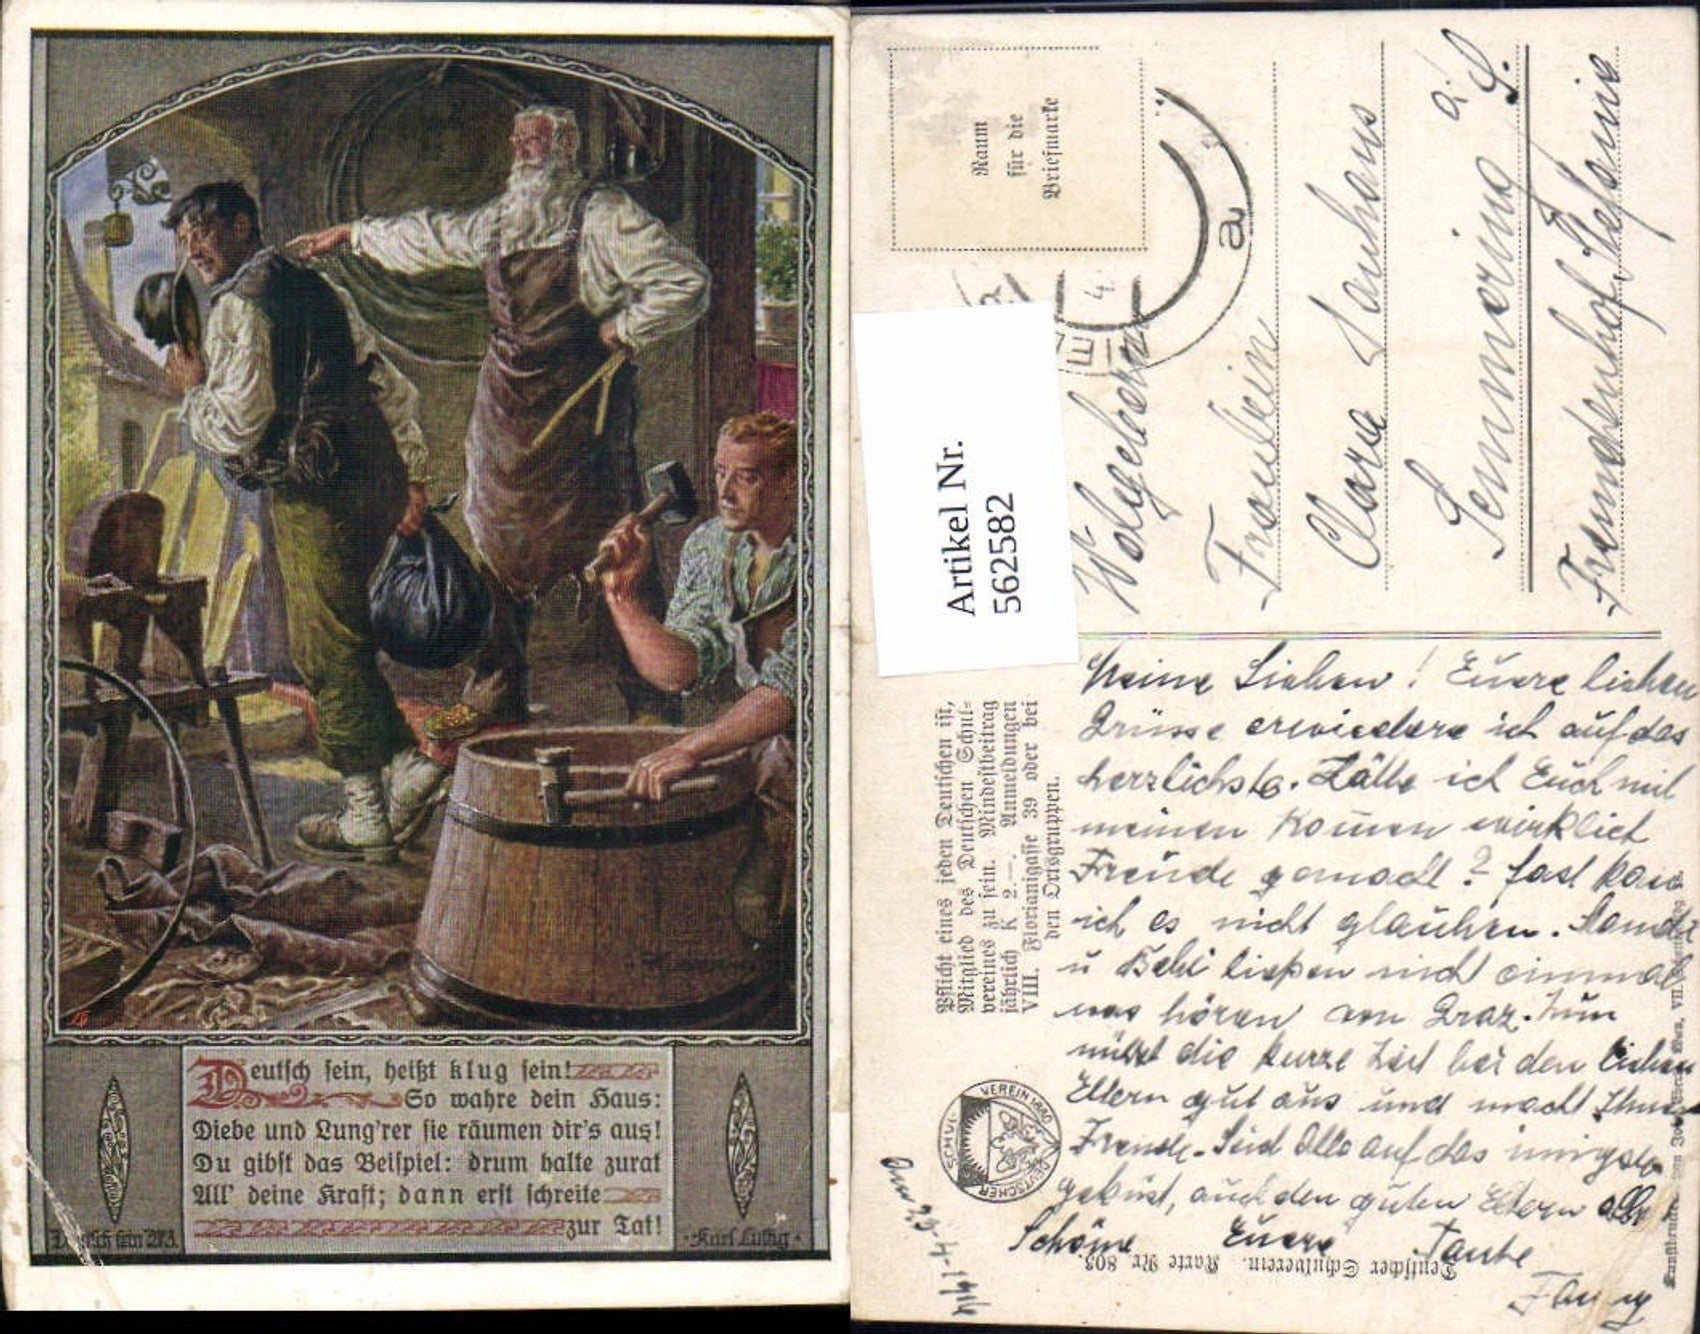 Deutsch sein, heißt klug sein!
So wahre dein Haus:
Diebe und Lung'rer sie räumen dir's aus!
Du gibst das Beispiel: drum halte zurat
All' deine Kraft; dann erst schreite
zur Tat!
Karl Luttig
Raum
für die
Briefmarke
a
Artikel Nr.
562582
Wolgeboren
Fraulein
Clara
Semmering a. S.
Fremdenhof Stefanie
Pflicht eines jeden Deutschen ist,
Mitglied des Deutschen Schul-
vereines zu sein. Mindestbeitrag
jährlich K 2.—. Anmeldungen
VIII. Florianigasse 39 oder bei
den Ortsgruppen.
DEUTSCHER SCHUL VEREIN 1880
Deutscher Schulverein. Karte Nr. 803.
Meine Lieben! Euere lieben
Grüsse erwiedere ich auf das
herzlichste. Hätte ich Euch mit
meinen Komen wirklich
Freude gemacht? fast kan
ich es nicht glauben.
u liesen nicht einmal
was hören von Graz. Nun
nützt die kurze Zeit bei den lieben
Eltern gut aus und macht Ihnen
Freude. Seid Alle auf das innigste
geküst, auch den guten Eltern alles
Schöne Euere Tante
Fanny